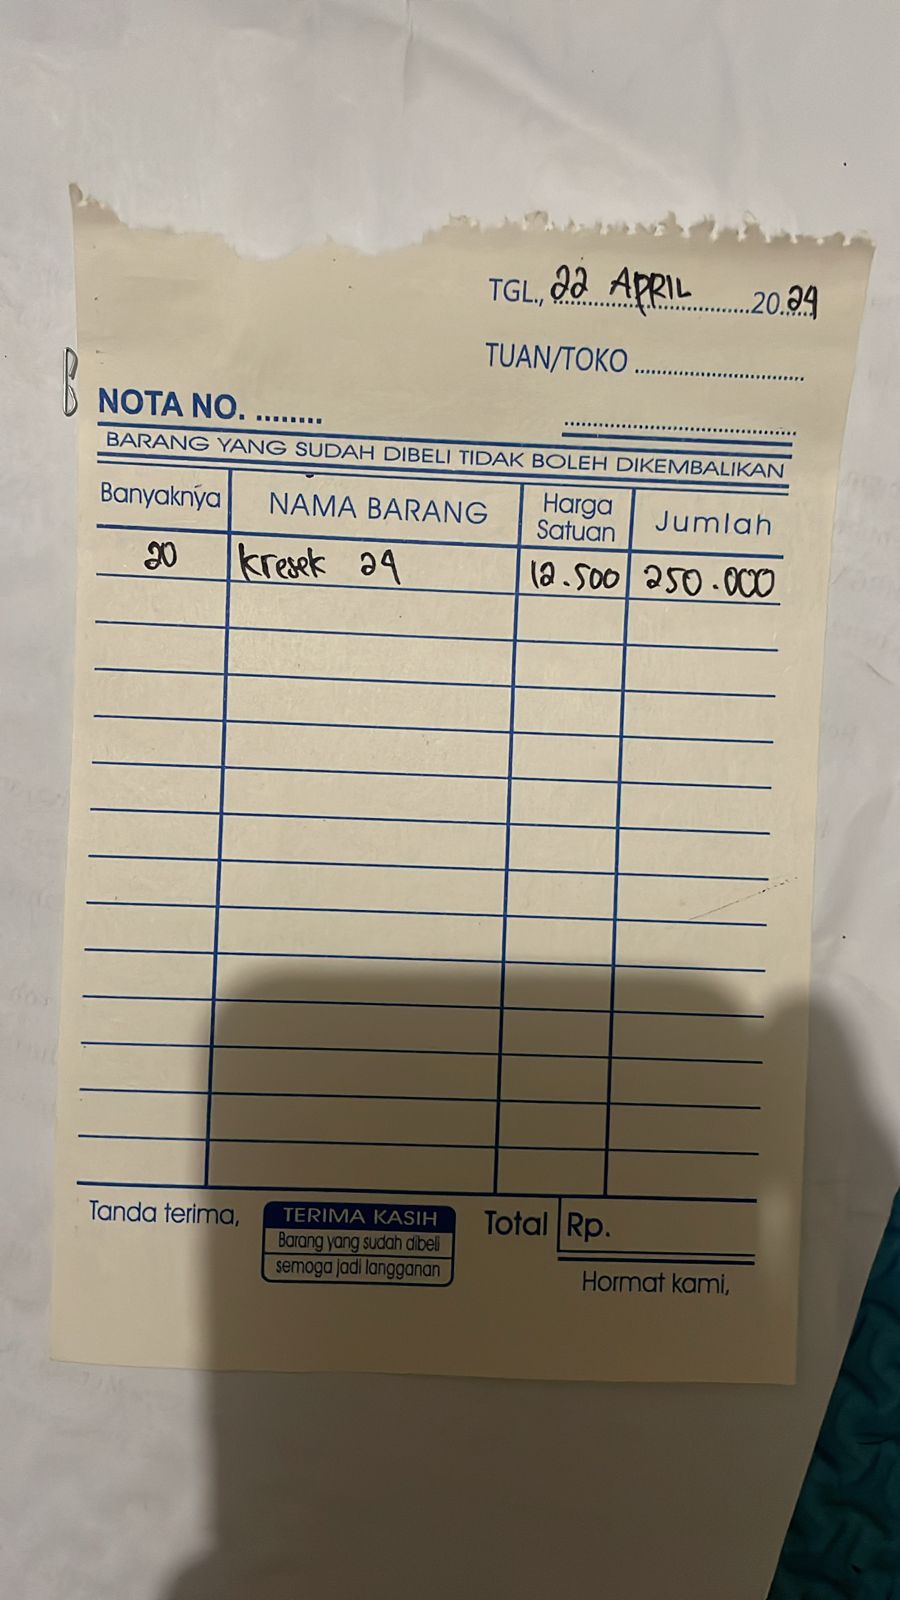 TGL., 22 APRIL 20.24
TUAN/TOKO
NOTA NO.
BARANG YANG SUDAH DIBELI TIDAK BOLEH DIKEMBALIKAN
Banyaknya NAMA BARANG Harga Satuan Jumlah
20 Kresek 24 12.500 250.000
Tanda terima, TERIMA KASIH Total Rp.
Barang yang sudah dibeli
semoga jadi langganan
Hormat kami,